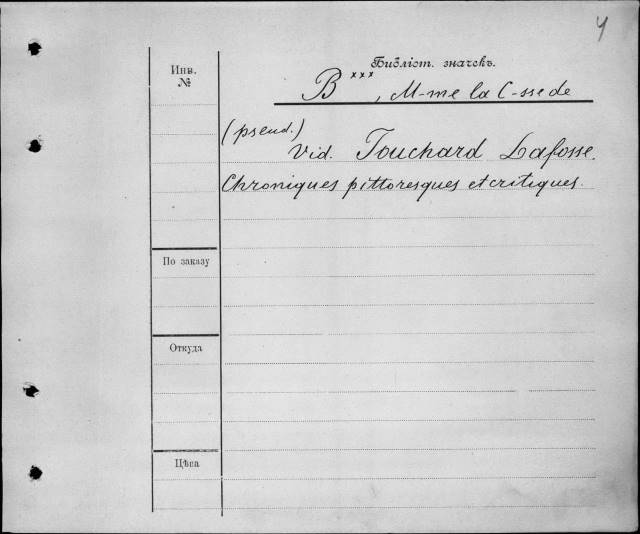 4
Библіот. значекъ.
Инв. №
B xxx, M-me la C-sse de
(pseud.)
Vid. Touchard Lafosse.
Chroniques pittoresques et critiques.
По заказу
Откуда
Цѣна